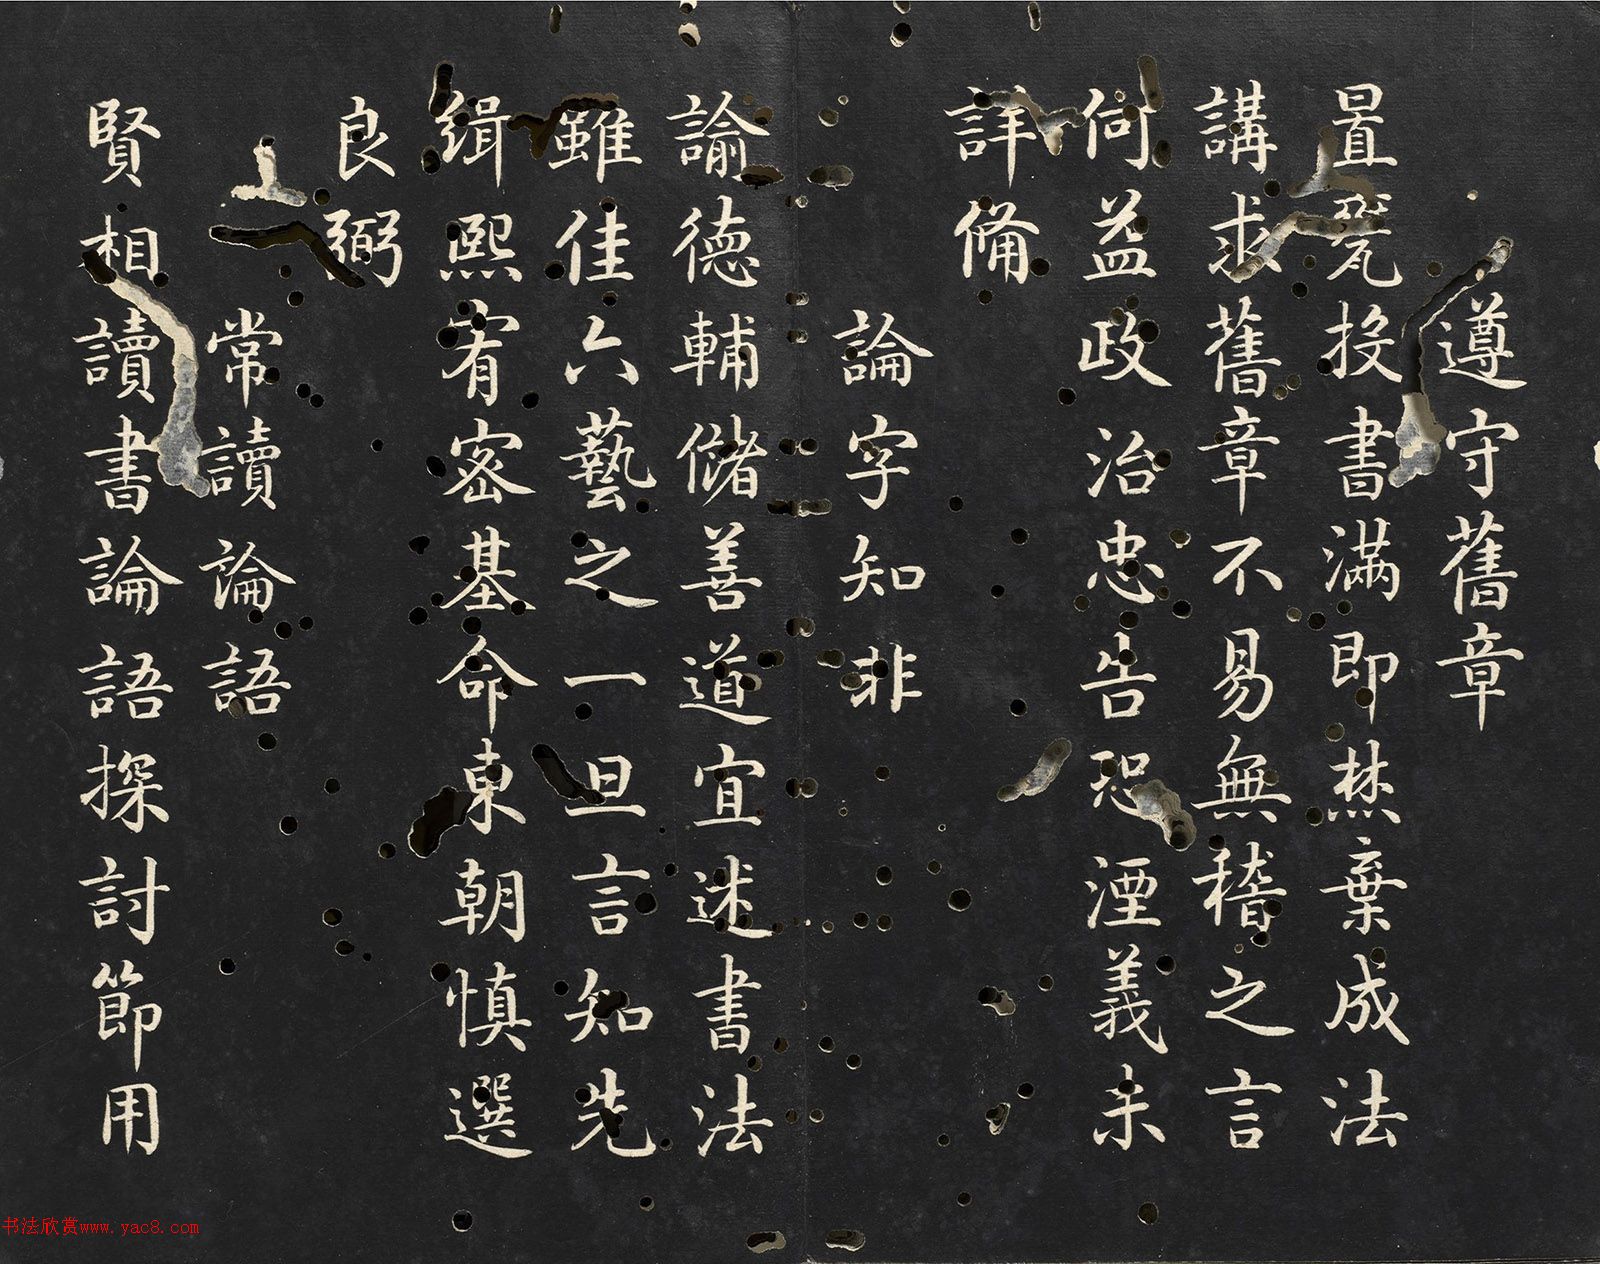 遵守舊章
置甕投書滿即焚棄成法
講求舊章不易無稽之言
何益政治忠告恐湮義未
詳備
論字知非
諭德輔儲善道宜迷書法
雖佳六藝之一旦言知先
緝熙宥密基命東朝慎選
良弼
常讀論語
賢相讀書論語探討節用
书法欣赏www.yac8.com